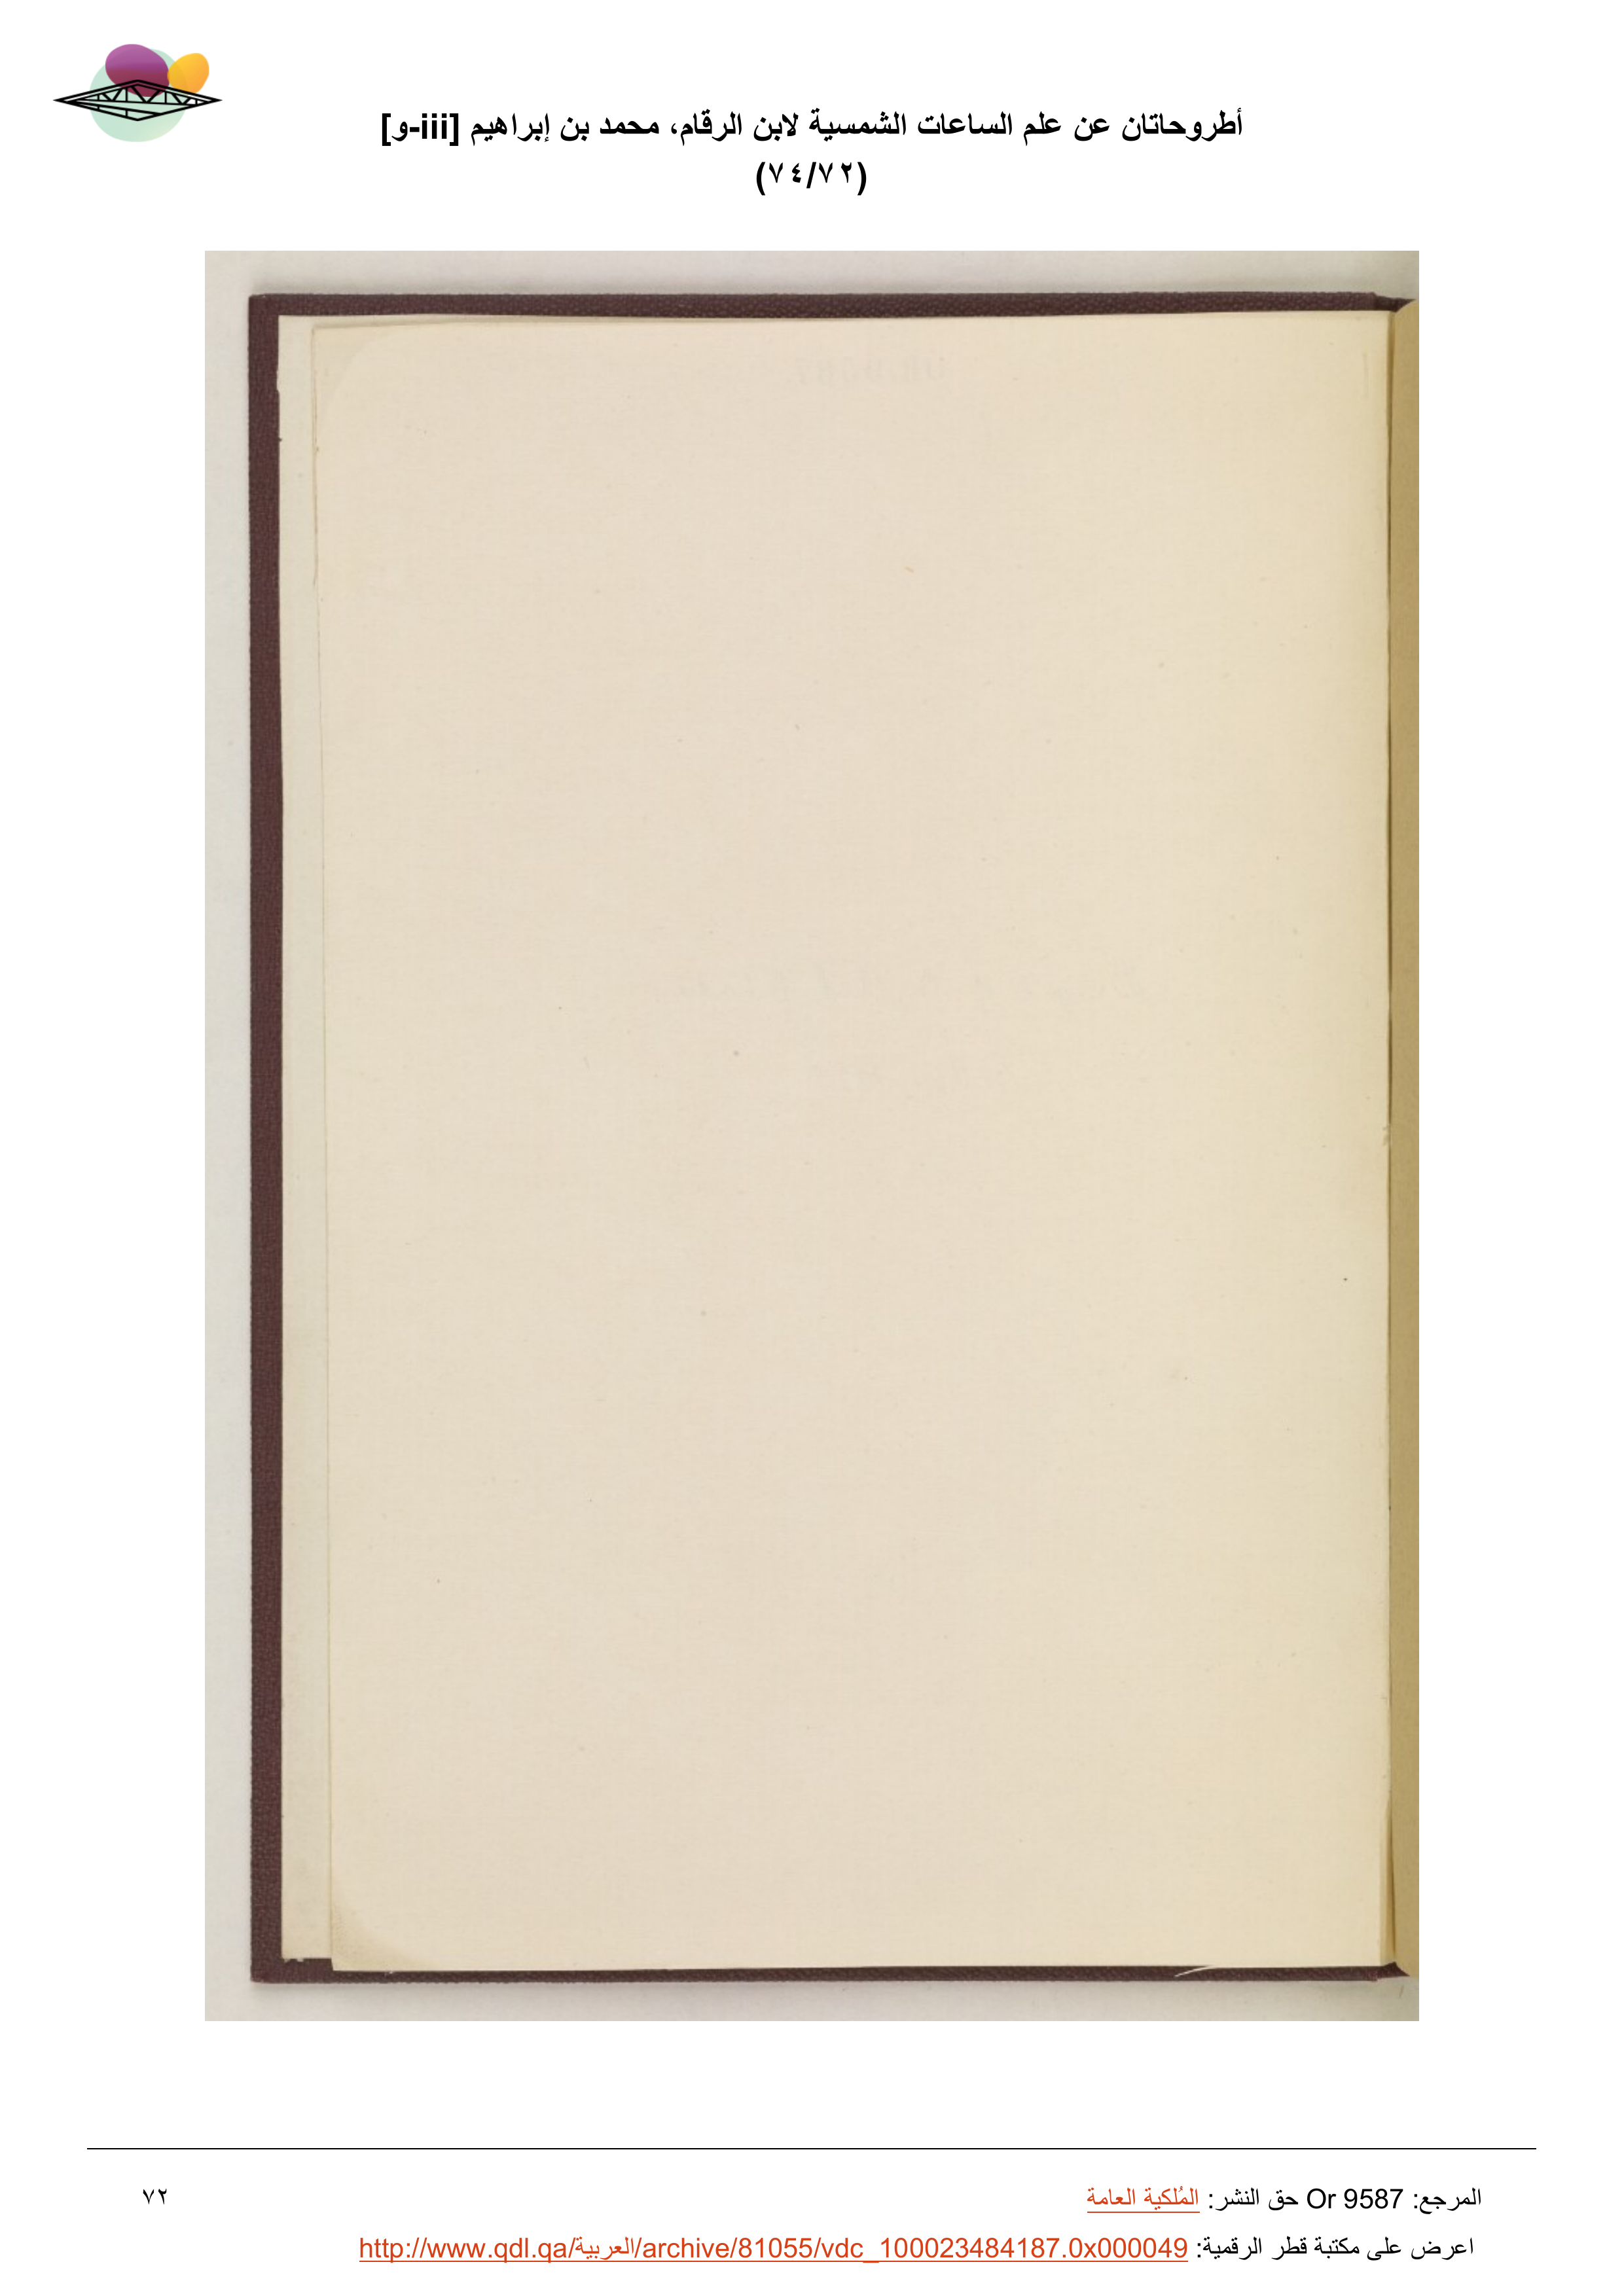 أطروحاتان عن علم الساعات الشمسية لابن الرقام، محمد بن إبراهيم [iii-و]
(٧٤/٧٢)
المرجع: Or 9587 حق النشر: المُلكية العامة
٧٢
اعرض على مكتبة قطر الرقمية: http://www.qdl.qa/العربية/archive/81055/vdc_100023484187.0x000049